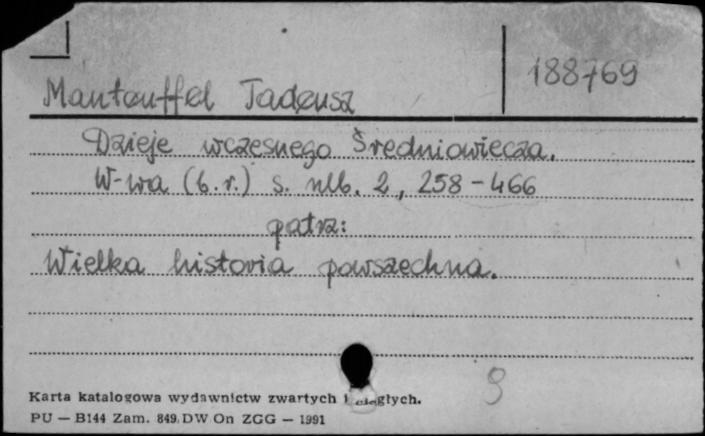 188769
Manteuffel Tadeusz
Dzieje wczesnego Średniowiecza.
W-wa (b.r.) s. nlb. 2, 258-466
patrz:
Wielka historia powszechna.
9
Karta katalogowa wydawnictw zwartych i ciągłych.
PU — B144 Zam. 849. DW On ZGG — 1991